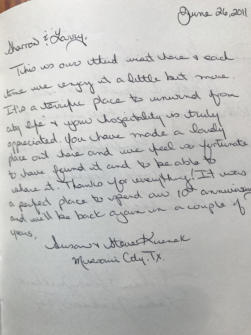 June 26, 2011
Sharron & Larry,
This is our third visit here & each
time we enjoy it a little bit more.
It's a terrific place to unwind from
city life & your hospitality is truly
appreciated. You have made a lovely
place out here and we feel so fortunate
to have found it and to be able to
share it. Thanks for everything! It was
a perfect place to spend our 10th anniversary
and we'll be back again in a couple of
years.
Susan & Steve
Missouri City, TX.